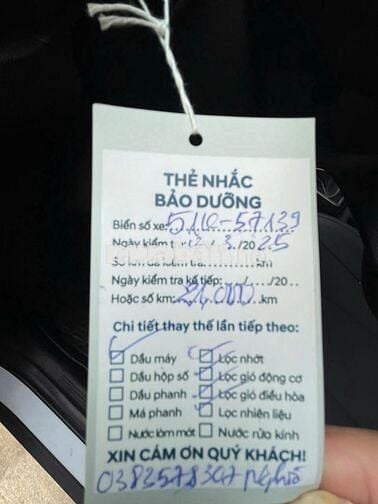 THẺ NHẮC
BẢO DƯỠNG
Biển số xe: 51K-57139
Ngày kiểm tra: 12/3/2025
Số km đã kiểm tra:..........km
Ngày kiểm tra kế tiếp:....../....../20...
Hoặc số km: 21,000 km
Chi tiết thay thế lần tiếp theo:
Dầu máy Lọc nhớt
Dầu hộp số Lọc gió động cơ
Dầu phanh Lọc gió điều hòa
Má phanh Lọc nhiên liệu
Nước làm mát Nước rửa kính
XIN CẢM ƠN QUÝ KHÁCH!
0383578307